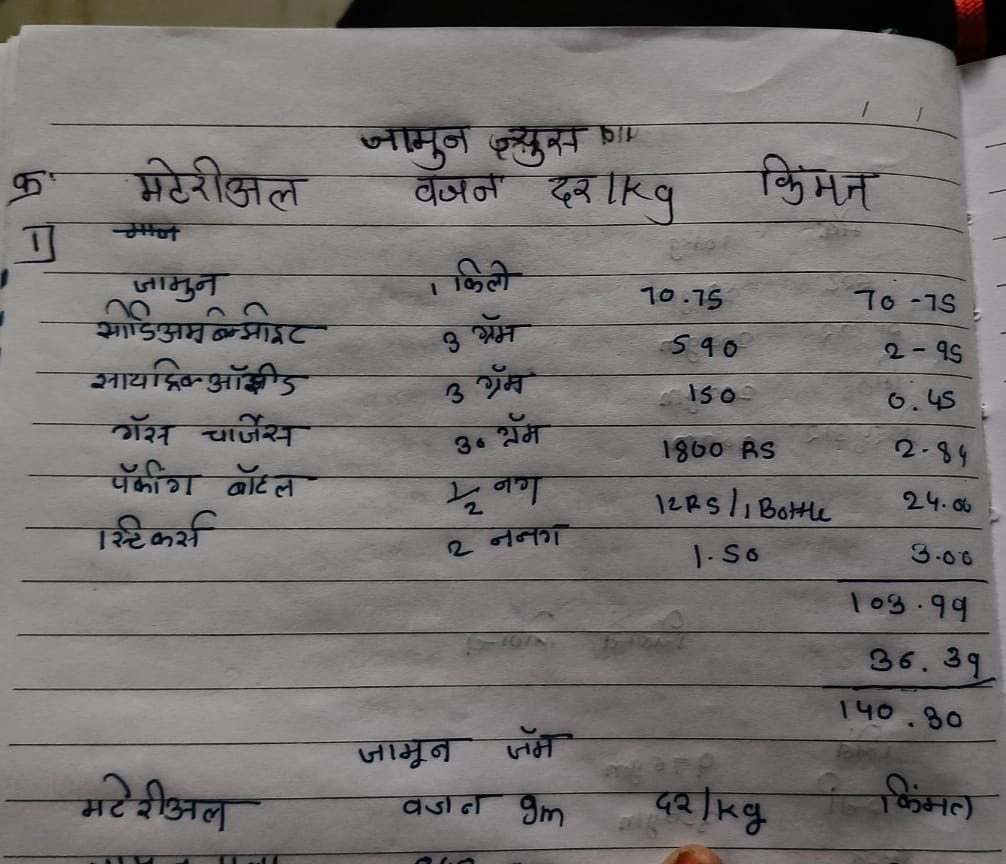 जामुन ज्युस
क्र. मटेरीअल वजन दर/kg किंमत
1]
जामुन 1 किलो 70.75 70-75
सोडिअम बेन्झोइट 3 ग्रॅम 590 2-95
सायट्रिक ॲसीड 3 ग्रॅम 150 0.45
गॅस चार्जेस 30 ग्रॅम 1800 RS 2.84
पॅकींग बॉटल 1/2 नग 12RS/1 Bottle 24.00
स्टिकर्स 2 ननग 1.50 3.00
103.99
36.39
140.30
जामून जॅम
मटेरीअल वजन gm दर/kg किंमत